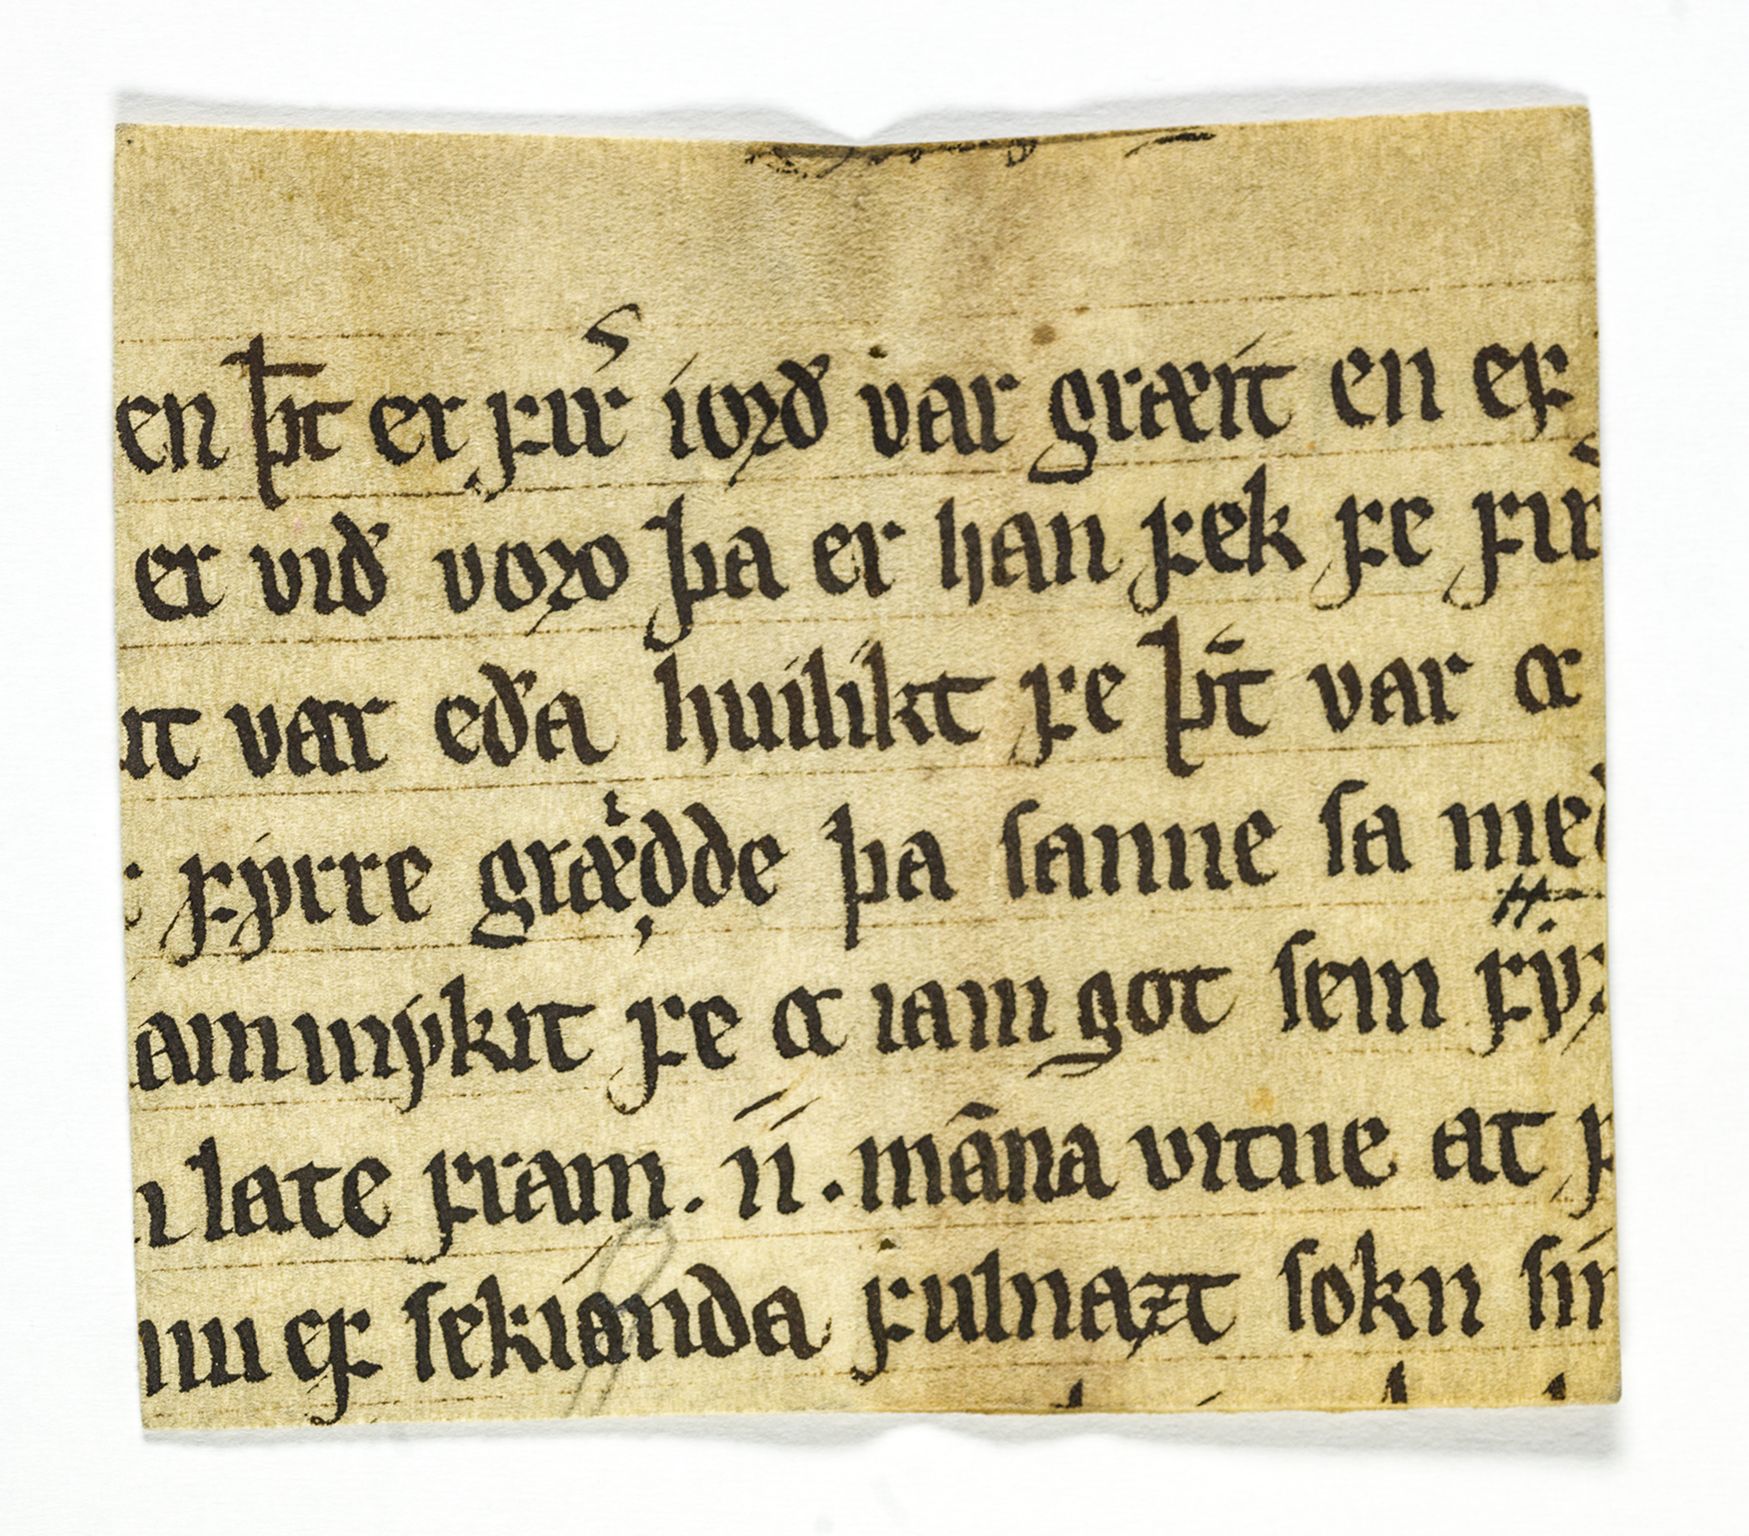 en þt er fir iorð var græit en ef
er við voro þa er han fek fe fir
it var eða huilikt fe þt var æ
fyrre græiðdde þa sanne sa með
am mykit fe æ iam got sem fyr
late fram. íí. māna vitne at
nu ef sekianda fulnazt sokn sin